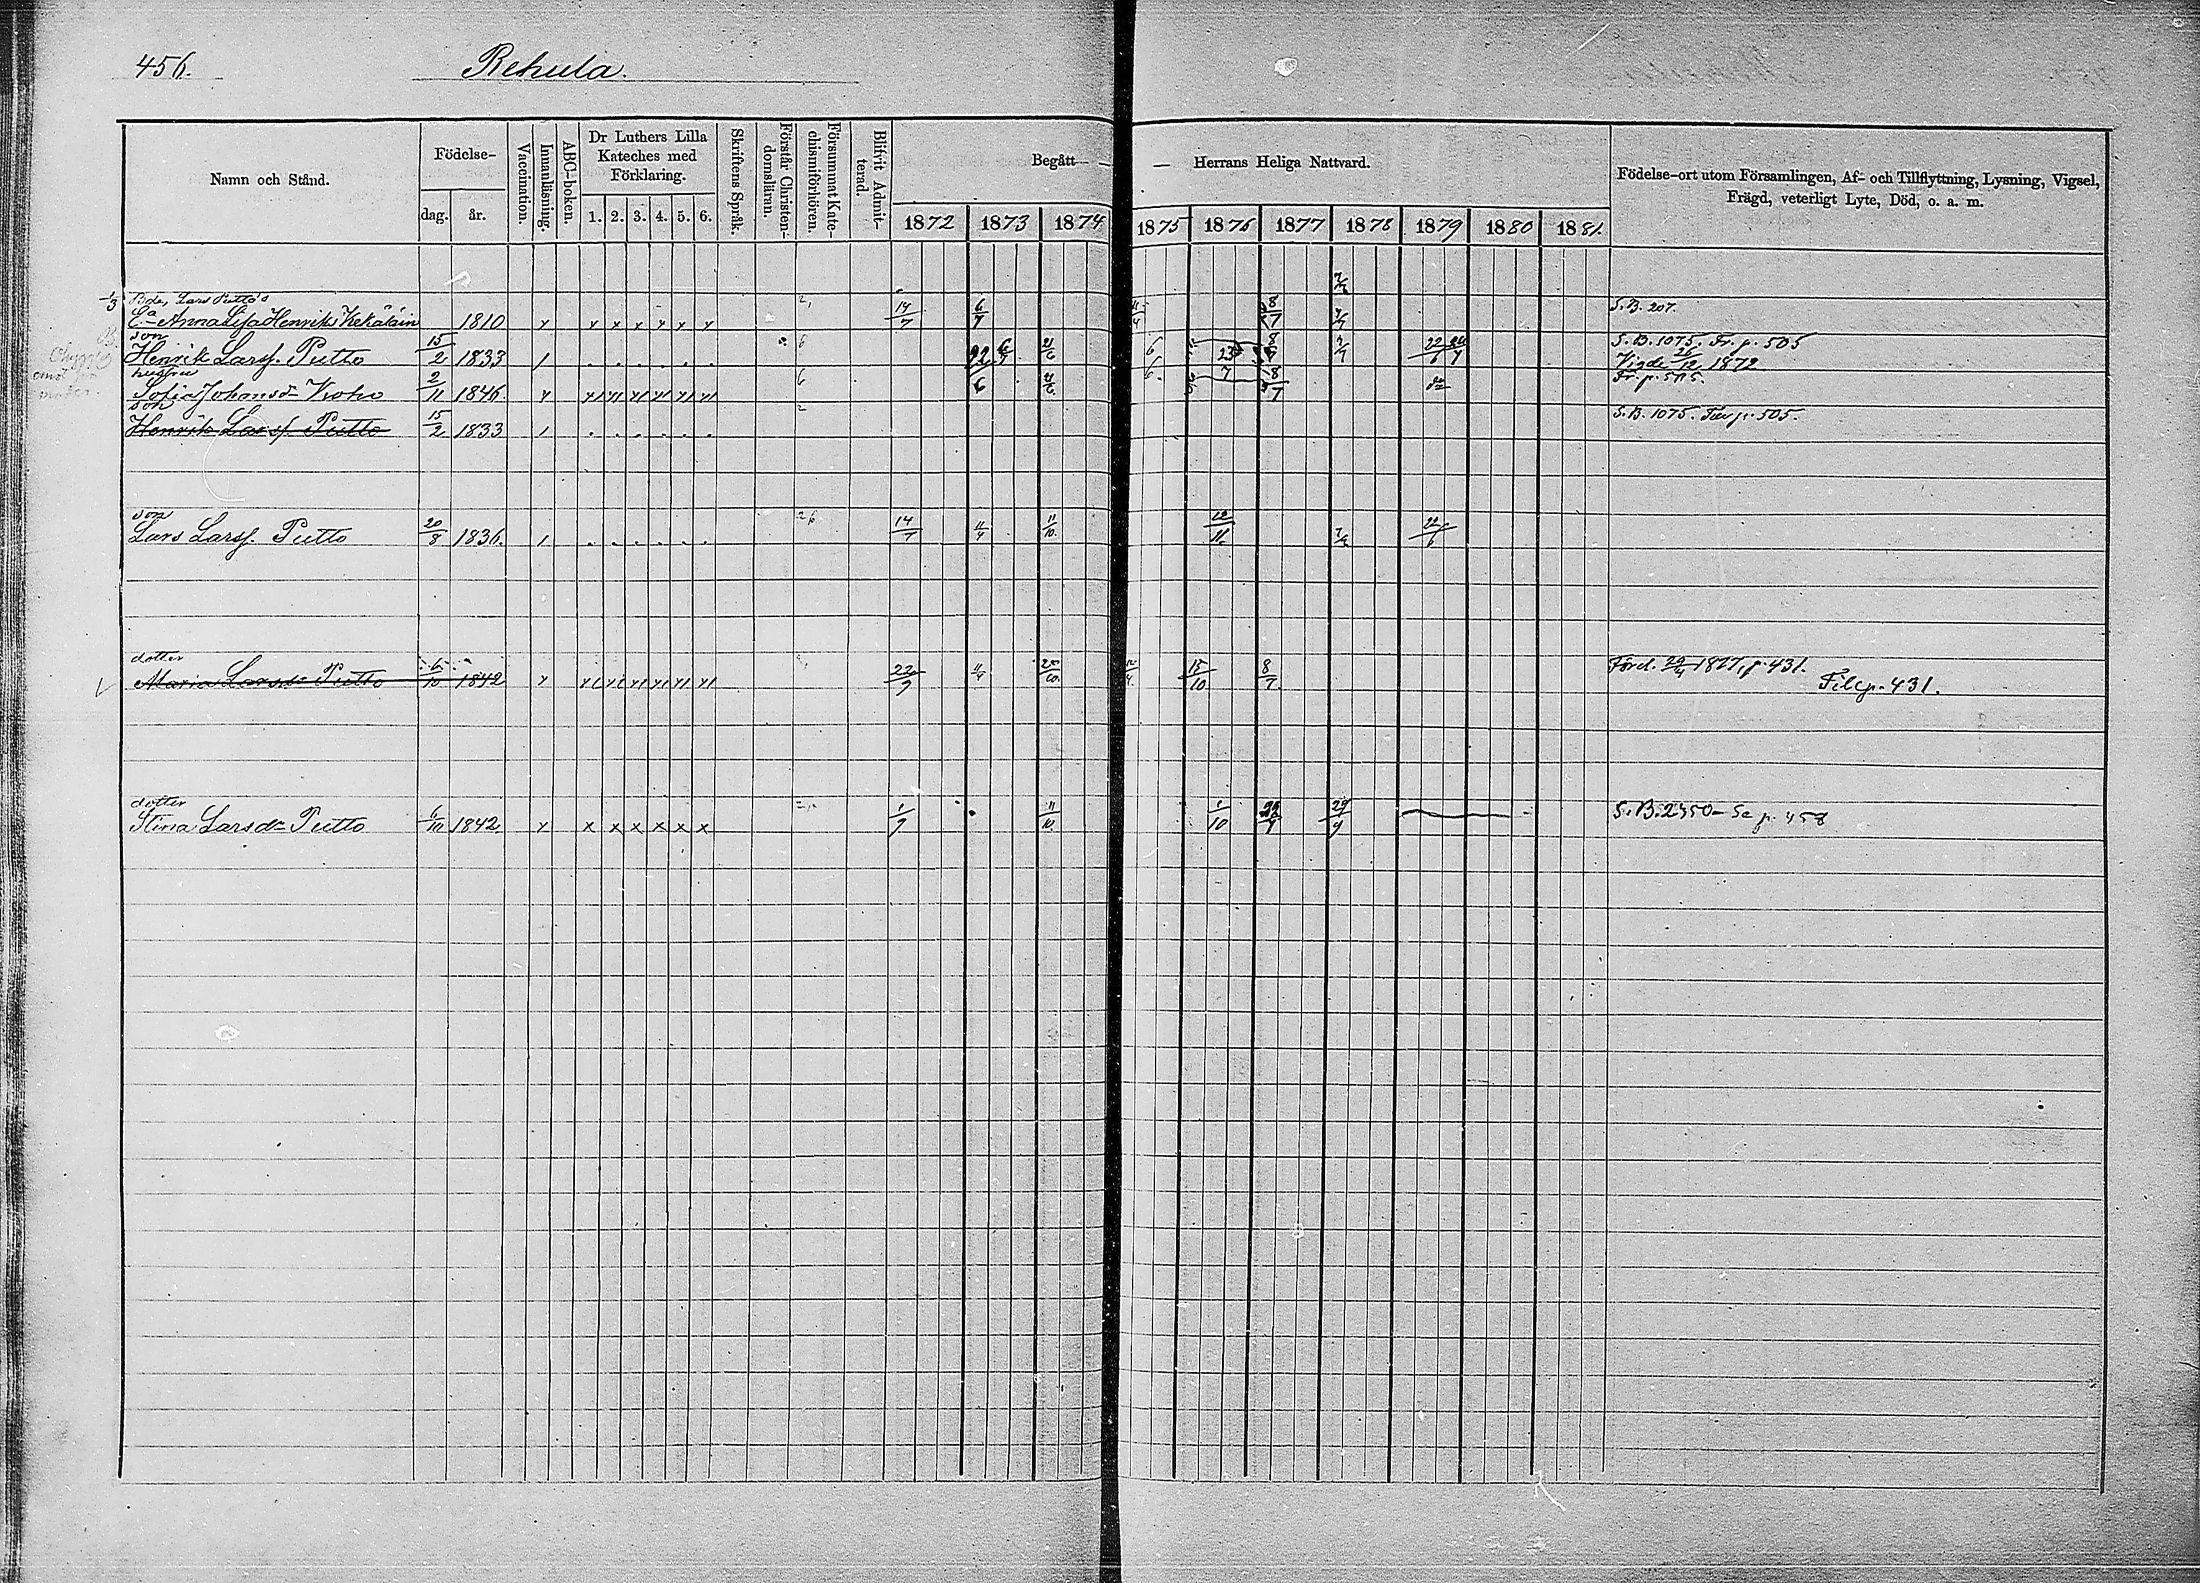 456.
Rehula.
Namn och Stånd.
Födelse-
dag. år.
Vaccination.
Innanläsning.
ABC-boken.
Dr Luthers Lilla
Kateches med
Förklaring.
1. 2. 3. 4. 5. 6.
Skriftens Språk.
Förstår Christen-
domsläran.
Försummat Kate-
chismiförhören.
Blifvit Admit-
terad.
Begått — — Herrans Heliga Nattvard.
1872 1873 1874 1875 1876 1877 1878 1879 1880 1881.
Födelse-ort utom Församlingen, Af- och Tillflyttning, Lysning, Vigsel,
Frägd, veterligt Lyte, Död, o. a. m.
Lars Putto's
Anna Lisa Henriks Kekäläin 1810 14/7 6/7 8/7 S.B. 207.
son
Henrik Larsf. Putto 15/2 1833 S.B. 1075. Fr. p. 505
Vigde 26/12 1872
hustru
Sofia Johansdr Kroho 2/11 1846. 8/7 Fr. p. 505.
son
Henrik Larsf. Putto 15/2 1833 S.B. 1075. p. 505.
son
Lars Larsf. Putto 20/8 1836. 14/7 11/10 12/11 22/6
dotter
Maria Larsdr Putto 6/10 1842 22/9 15/10 8/7 1877, p. 431.
Till p. 431.
dotter
Stina Larsdr Putto 6/10 1842 1/9 11/10 1/10 29/9 S.B. 2350 - Se p. 458